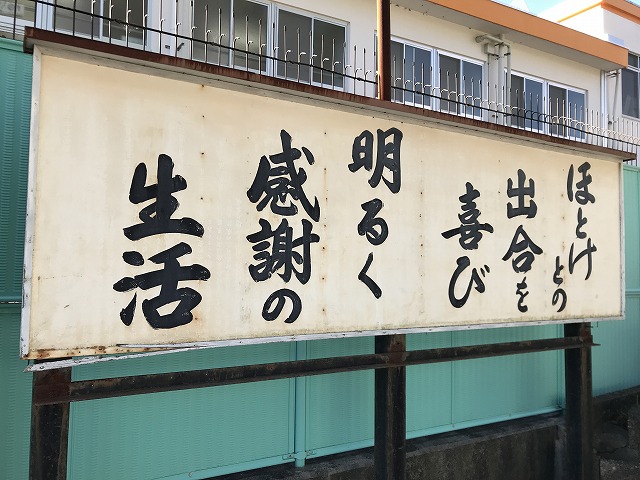 ほとけとの
出合を
喜び
明るく
感謝の
生活